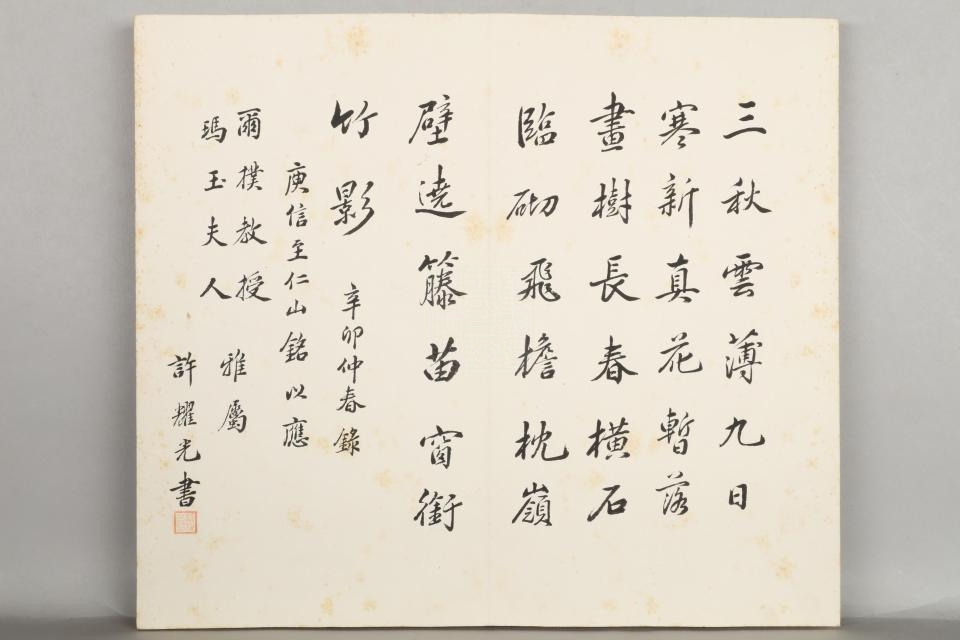 三秋雲薄九日
寒新真花暫落
畫樹長春橫石
臨砌飛檐枕嶺
壁遶籐苗窗銜
竹影
辛卯仲春錄
庾信至仁山銘以應
爾樸教授
瑪玉夫人
雅屬
許耀光書